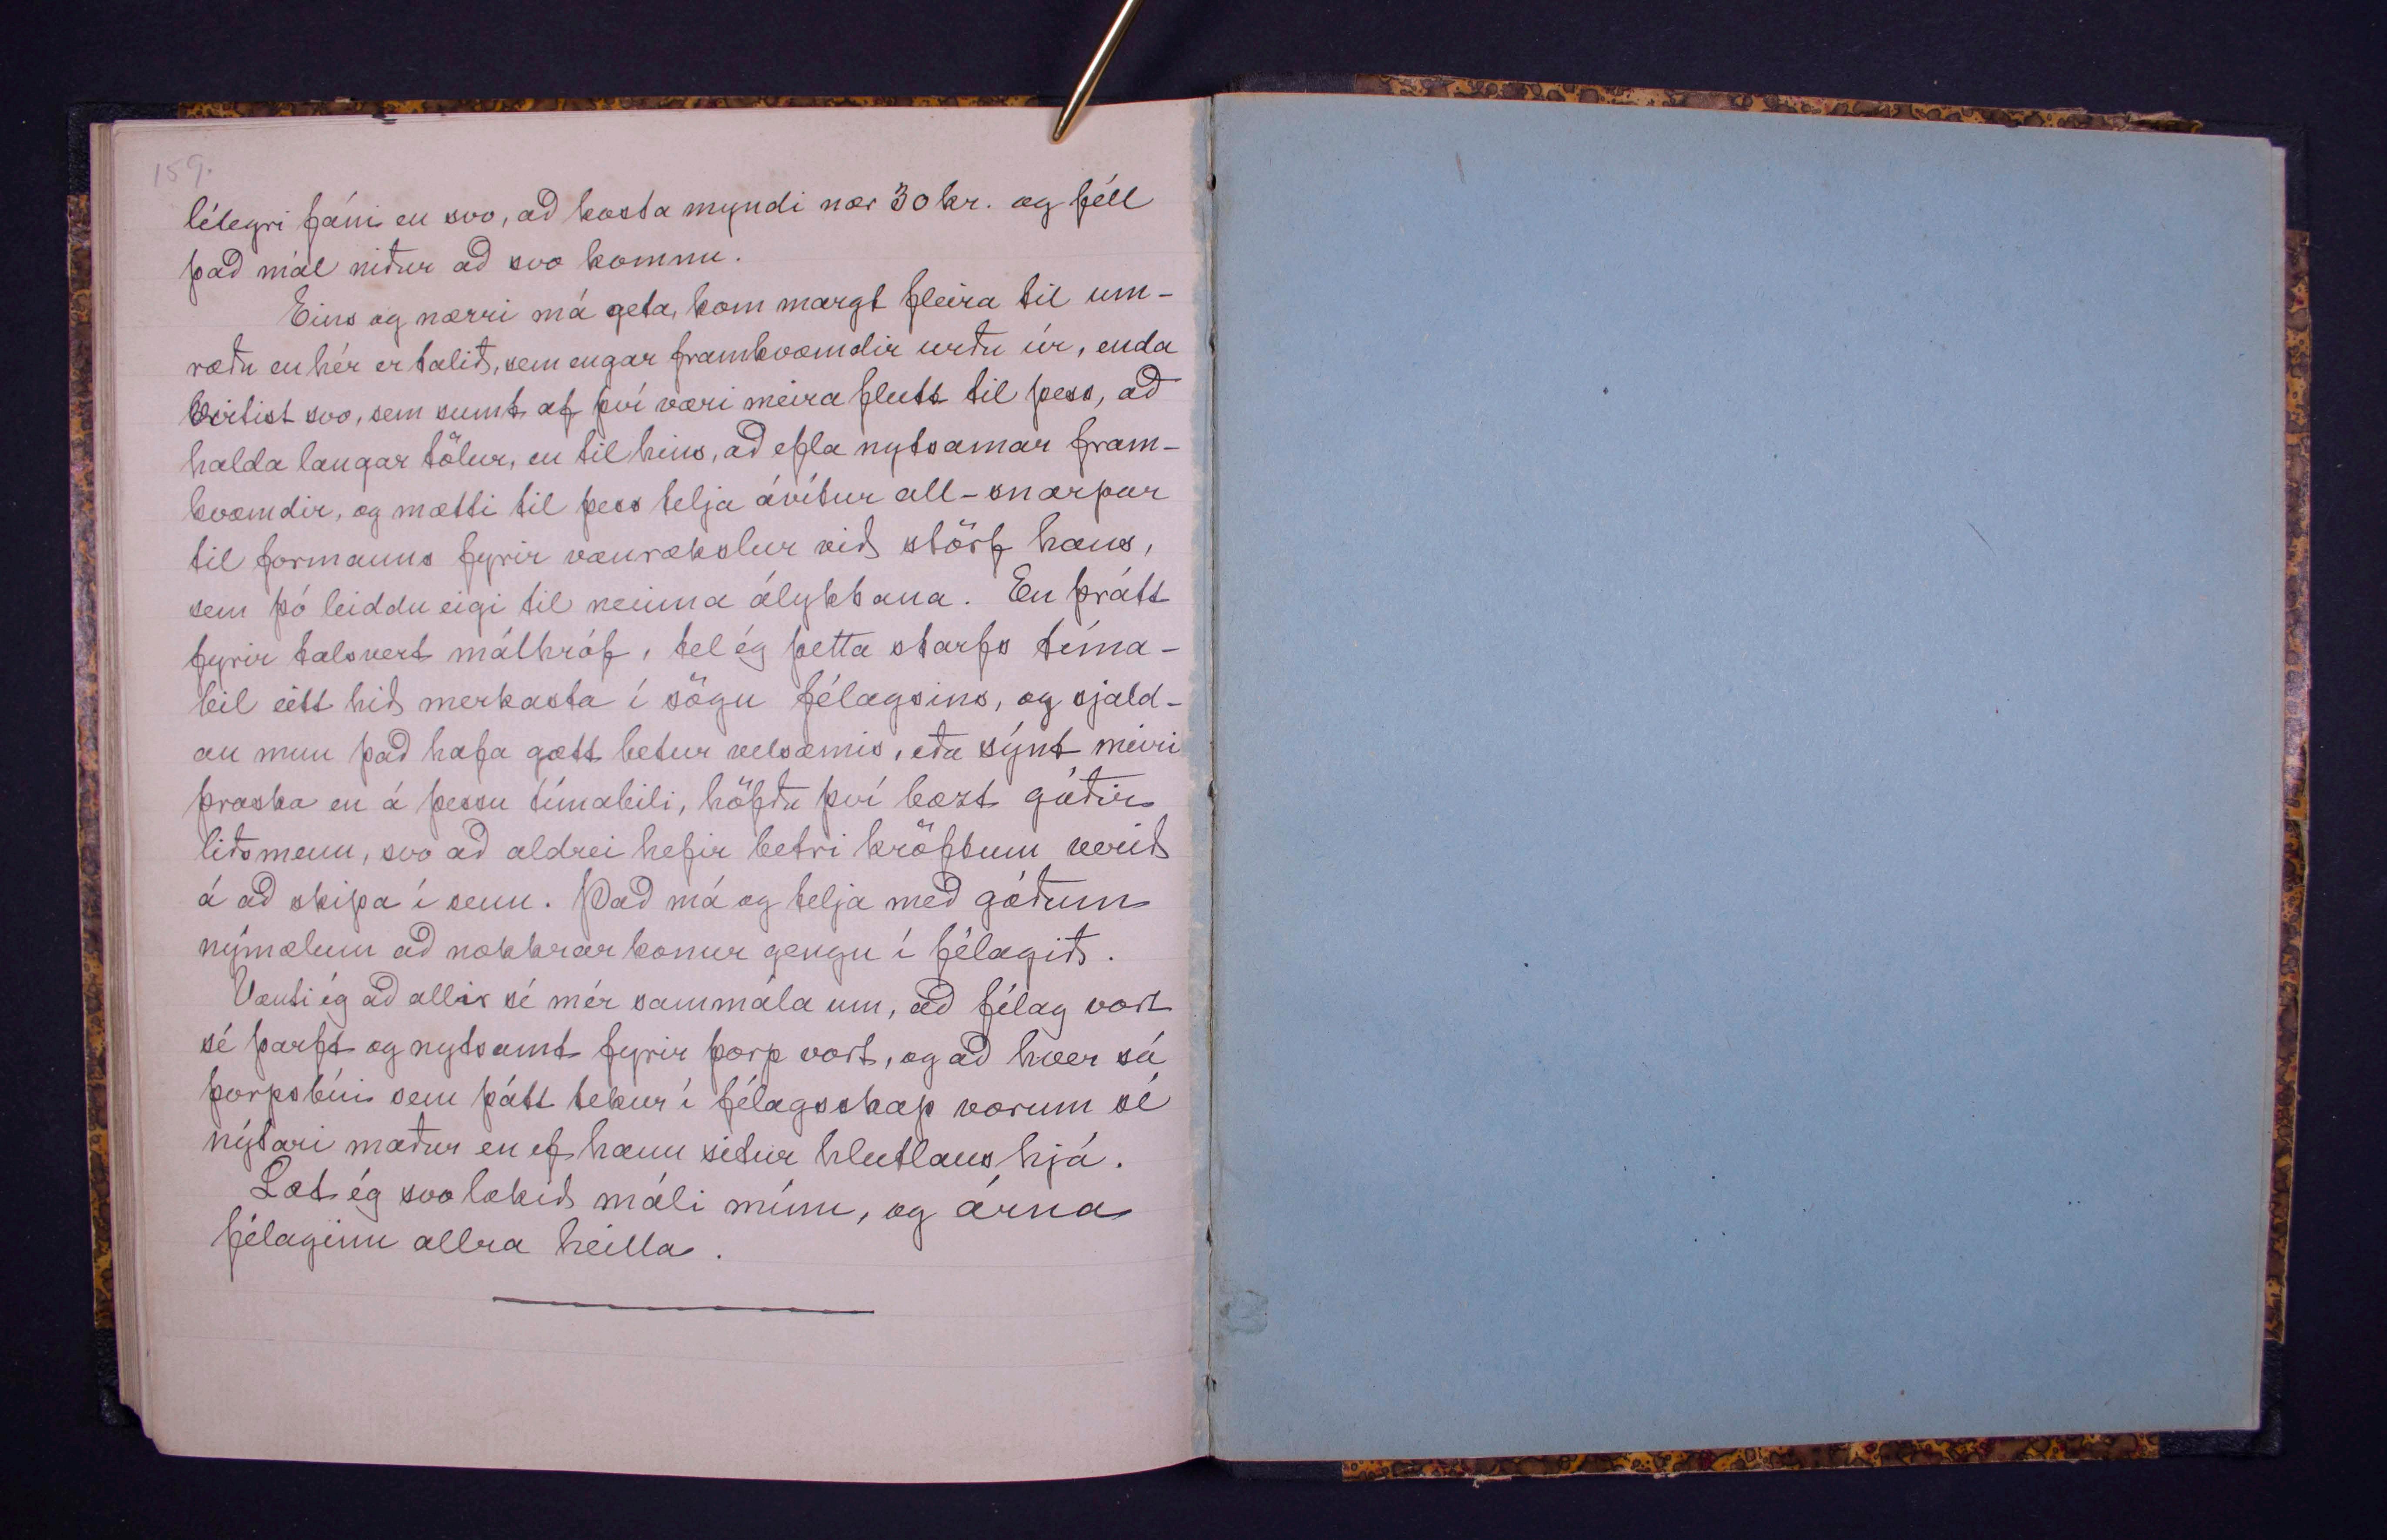 159.
lélegri fáni en svo, að kosta myndi nær 30 kr. og féll
það mál niður að svo komnu.
Eins og nærri má geta, kom margt fleira til um-
ræðu en hér er talið, sem engar framkvæmdir urðu úr, enda
virtist svo, sem sumt af því væri meira flutt til þess, að
halda langar tölur, en til hins, að efla nytsamar fram-
kvæmdir, og mætti til þess telja ávítur all-snarpar
til formanns fyrir vanrækslur við störf hans,
sem þó leiddu eigi til neinna ályktana. En þrátt
fyrir talsvert málþróf, tel ég þetta starfs tíma-
bil eitt hið merkasta í sögu félagsins, og sjald-
an mun það hafa gætt betur velsæmis, eða sýnt meiri
þroska en á þessu tímabili, höfðu því bæzt góðir
liðsmenn, svo að aldrei hefir betri kröftum verið
á að skipa í senn. Það má og telja með góðum
nýmælum að nokkrar konur gengu í félagið.
Vænti ég að allir sé mér sammála um, að félag vort
sé þarft og nytsamt fyrir þorp vort, og að hver sá
þorpsbúi sem þátt tekur í félagsskap vorum sé
nýtari maður en ef hann situr hlutlaus hjá.
Læt ég svo lokið máli mínu, og árna
félaginu allra heilla.